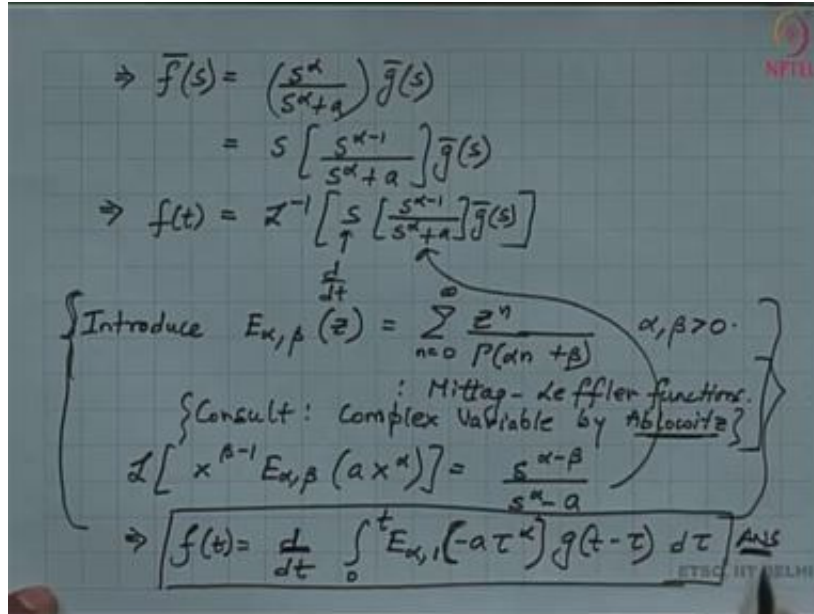 NPTEL
⇒ f̄(s) = (s^α / (s^α + a)) ḡ(s)
= s [s^(α-1) / (s^α + a)] ḡ(s)
⇒ f(t) = L^-1 [s [s^(α-1) / (s^α + a)] ḡ(s)]
↑
d/dt
{Introduce E_α,β (z) = Σ_(n=0)^∞ z^n / Γ(αn + β) α, β > 0.
: Mittag-Leffler functions.
{Consult: Complex Variable by Ablowitz}
L[x^(β-1) E_α,β (a x^α)] = s^(α-β) / (s^α - a)
⇒ f(t) = d/dt ∫_0^t E_α,1 (-a τ^α) g(t-τ) dτ Ans
ETSC, IIT DELHI